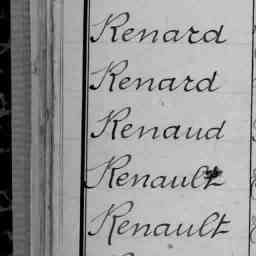 Renard
Renard
Renaud
Renault
Renault